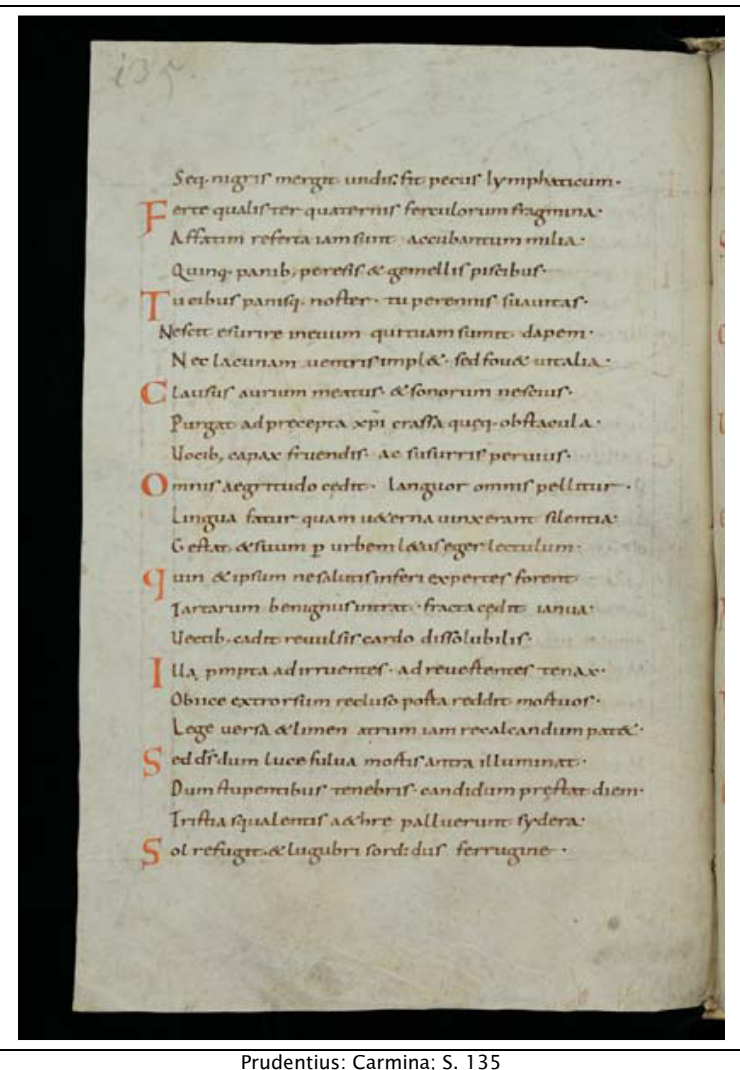 135
Seq. nigris mergit undis: fit pecus lymphaticum·
Ferte qualis ter quaternis ferculorum fragmina·
Affatim referta iam sunt accubantum milia·
Quinq. panib, peresis & gemellis piscibus·
Tu cibus panisq. noster· tu perennis suauitas·
Nescit esurire in euum qui tuam sumit dapem·
Nec lacunam uentris impl&· sed fou& uitalia·
Clausus aurium meatus· & sonorum nescius·
Purgat ad precepta xpi crassa queq. obstacula·
Uocib, capax fruendis· ac susurris peruius·
Omnis aegritudo cedit· languor omnis pellitur·
Lingua fatur quam u&erna uinxerant silentia·
Gestat & suum p urbem l&us eger lectulum·
quin & ipsum ne salutis inferi expertes forent
Tartarum benignus intrat· fracta cedit ianua·
Uectib. cadit reuulsis cardo dissolubilis·
Illa pmpta ad irruentes· ad reuertentes tenax·
Obiice extrorsum recluso porta reddit mortuos·
Lege uersa & limen atrum iam recalcandum pat&·
Sed ds dum luce fulua mortis antra illuminat·
Dum stupentibus tenebris· candidum prestat diem·
Tristia squalentis aethre palluerunt sydera·
Sol refugit· & lugubri sordidus ferrugine·
Prudentius: Carmina; S. 135